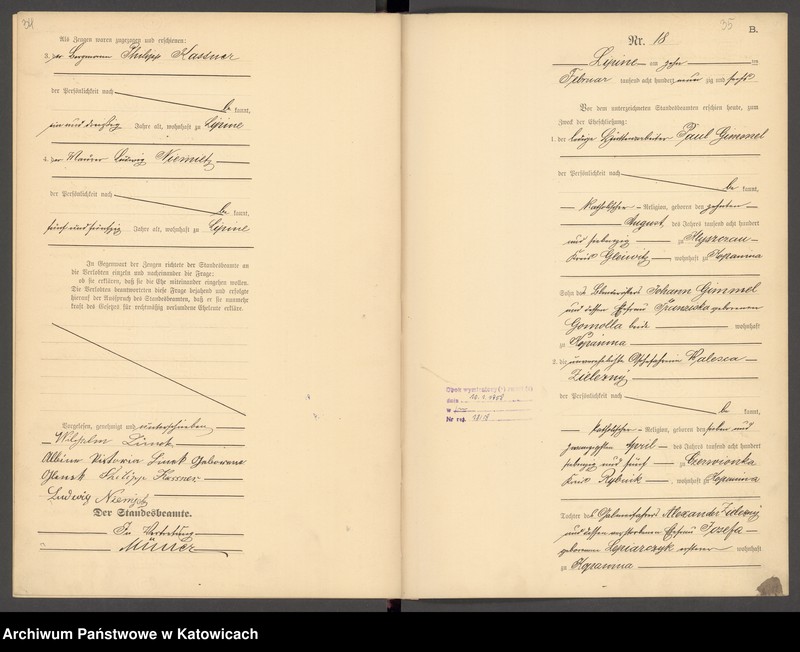 34
Als Zeugen waren zugezogen und erschienen:
3. der Bergmann Philipp Kassner
der Persönlichkeit nach
be kannt,
ein und dreißig Jahre alt, wohnhaft zu Lipine
4. der Maurer Ludwig Niemietz
der Persönlichkeit nach
be kannt,
fünf und fünfzig Jahre alt, wohnhaft zu Lipine
In Gegenwart der Zeugen richtete der Standesbeamte an
die Verlobten einzeln und nacheinander die Frage:
ob sie erklären, daß sie die Ehe miteinander eingehen wollen.
Die Verlobten beantworteten diese Frage bejahend und erfolgte
hierauf der Ausspruch des Standesbeamten, daß er sie nunmehr
kraft des Gesetzes für rechtmäßig verbundene Eheleute erkläre.
Vorgelesen, genehmigt und unterschrieben
Wilhelm Linek
Albine Viktoria Linek Geborene
Philipp Kassner
Ludwig Niemietz
Der Standesbeamte.
In Vertretung
35
B.
Nr. 18
Lipine am zehn ten
Februar tausend acht hundert neun zig und sechs
Vor dem unterzeichneten Standesbeamten erschien heute, zum
Zweck der Eheschließung:
1. der ledige Hüttenarbeiter Paul Gimmel
der Persönlichkeit nach
be kannt,
katholischer Religion, geboren den zehnten
August des Jahres tausend acht hundert
und siebenzig zu
Kreis Gleiwitz wohnhaft zu Kopanina
Sohn des Johann Gimmel
und dessen Ehefrau Franziska geborenen
Gomolla beide wohnhaft
zu Kopanina
2. die unverehelichte Valesca
Zielezny
der Persönlichkeit nach
be kannt,
katholischer Religion, geboren den sieben und
zwanzigsten April des Jahres tausend acht hundert
siebenzig und fünf zu Czerwionka
Kreis Rybnik, wohnhaft zu Kopanina
Tochter des Alexander Zielezny
und dessen verstorbenen Ehefrau Josefa
geborenen ersterer wohnhaft
zu Kopanina
dnia
w
Nr rej.
Archiwum Państwowe w Katowicach